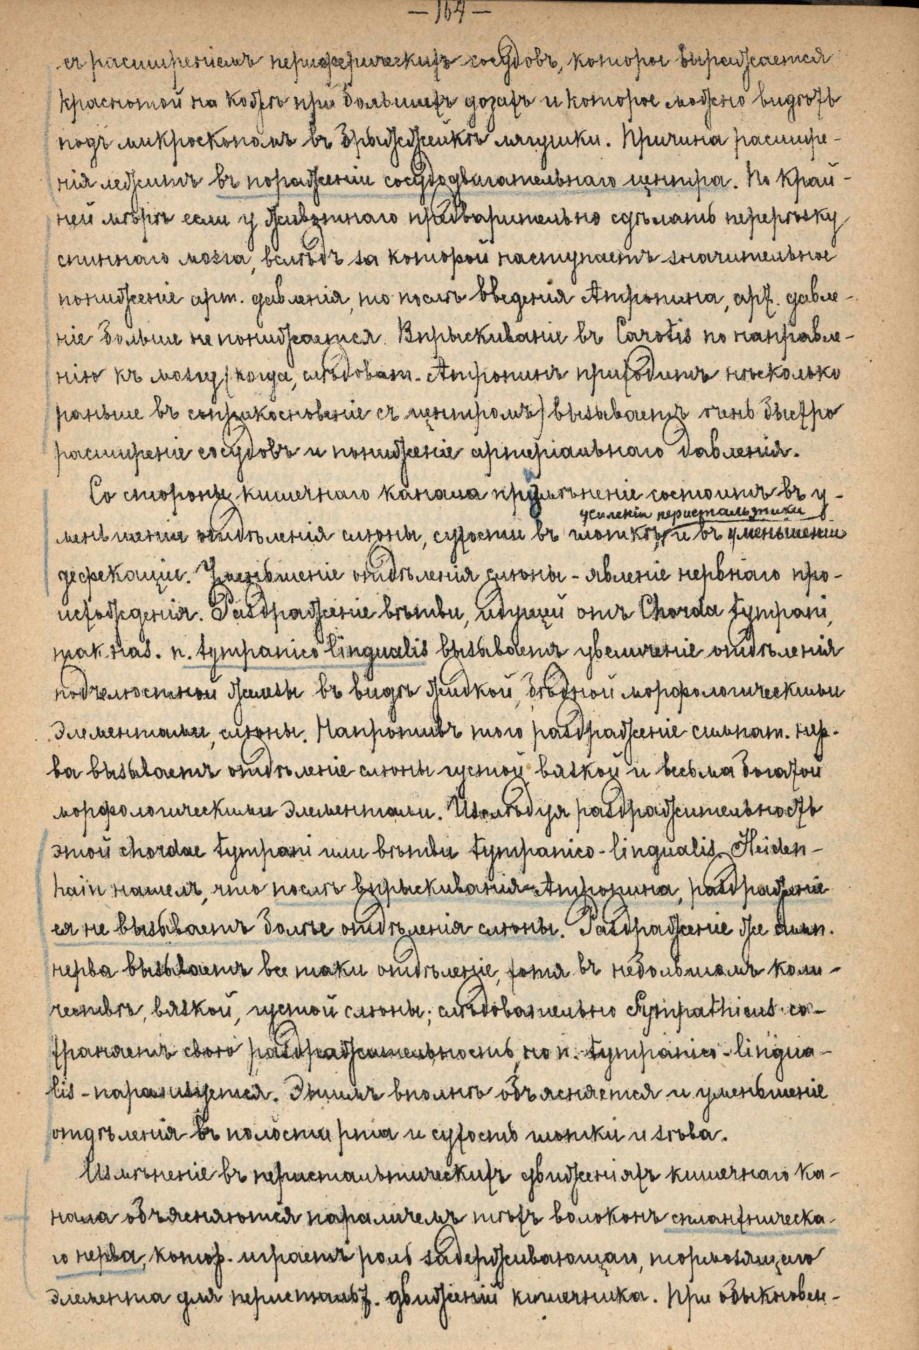 —164—
съ расширеніемъ периферическихъ сосудовъ, которое выражается
краснотой на кожѣ при большихъ дозахъ и которое можно видѣть
подъ микроскопомъ въ брыжжейкѣ лягушки. Причина расшире-
нія лежитъ въ пораженіи сосудодвигательнаго центра. По край-
ней мѣрѣ если у животнаго предварительно сдѣлать перерѣзку
спиннаго мозга, вслѣдъ за которой наступаетъ значительное
пониженіе арт. давленія, то послѣ введенія Атропина, арт. давле-
ніе больше не понижается. Впрыскиваніе въ Carotis по направле-
нію къ мозгу (когда, слѣдоват. Атропинъ приходитъ нѣсколько
раньше въ соприкосновеніе съ центромъ) вызываетъ очень быстро
расширеніе сосудовъ и пониженіе артеріальнаго давленія.
Со стороны кишечнаго канала измѣненіе состоитъ въ у-
усиленіи перистальтики
меньшеніи отдѣленія слюны, сухости въ глоткѣ, и въ уменьшеніи
дефекаціи. Уменьшеніе отдѣленія слюны - явленіе нервнаго про-
исхожденія. Раздраженіе вѣтви, идущей отъ Chorda tympani,
так. наз. n. tympanico lingualis вызываетъ увеличеніе отдѣленія
подчелюстной железы въ видѣ жидкой, бѣдной морфологическими
элементами, слюны. Напротивъ того раздраженіе симпат. нер-
ва вызываетъ отдѣленіе слюны густой вязкой и весьма богатой
морфологическими элементами. Изслѣдуя раздражительность
этой chordae tympani или вѣтви tympanico-lingualis, Heiden-
hain нашелъ, что послѣ впрыскиванія Атропина, раздраженіе
ея не вызываетъ болѣе отдѣленія слюны. Раздраженіе же симп.
нерва вызываетъ все таки отдѣленіе, хотя въ небольшомъ коли-
чествѣ, вязкой, густой слюны; слѣдовательно Sympathicus со-
храняетъ свою раздражительность, но n. tympanico-lingua-
lis - парализуется. Этимъ вполнѣ объясняется и уменьшеніе
отдѣленія въ полости рта и сухость глотки и зѣва.
Измѣненіе въ перистальтическихъ движеніяхъ кишечнаго ка-
нала объясняются параличемъ тѣхъ волоконъ спланхническа-
го нерва, котор. играетъ роль задерживающаго, тормозящаго
элемента для перистальт. движеній кишечника. При обыкновен-